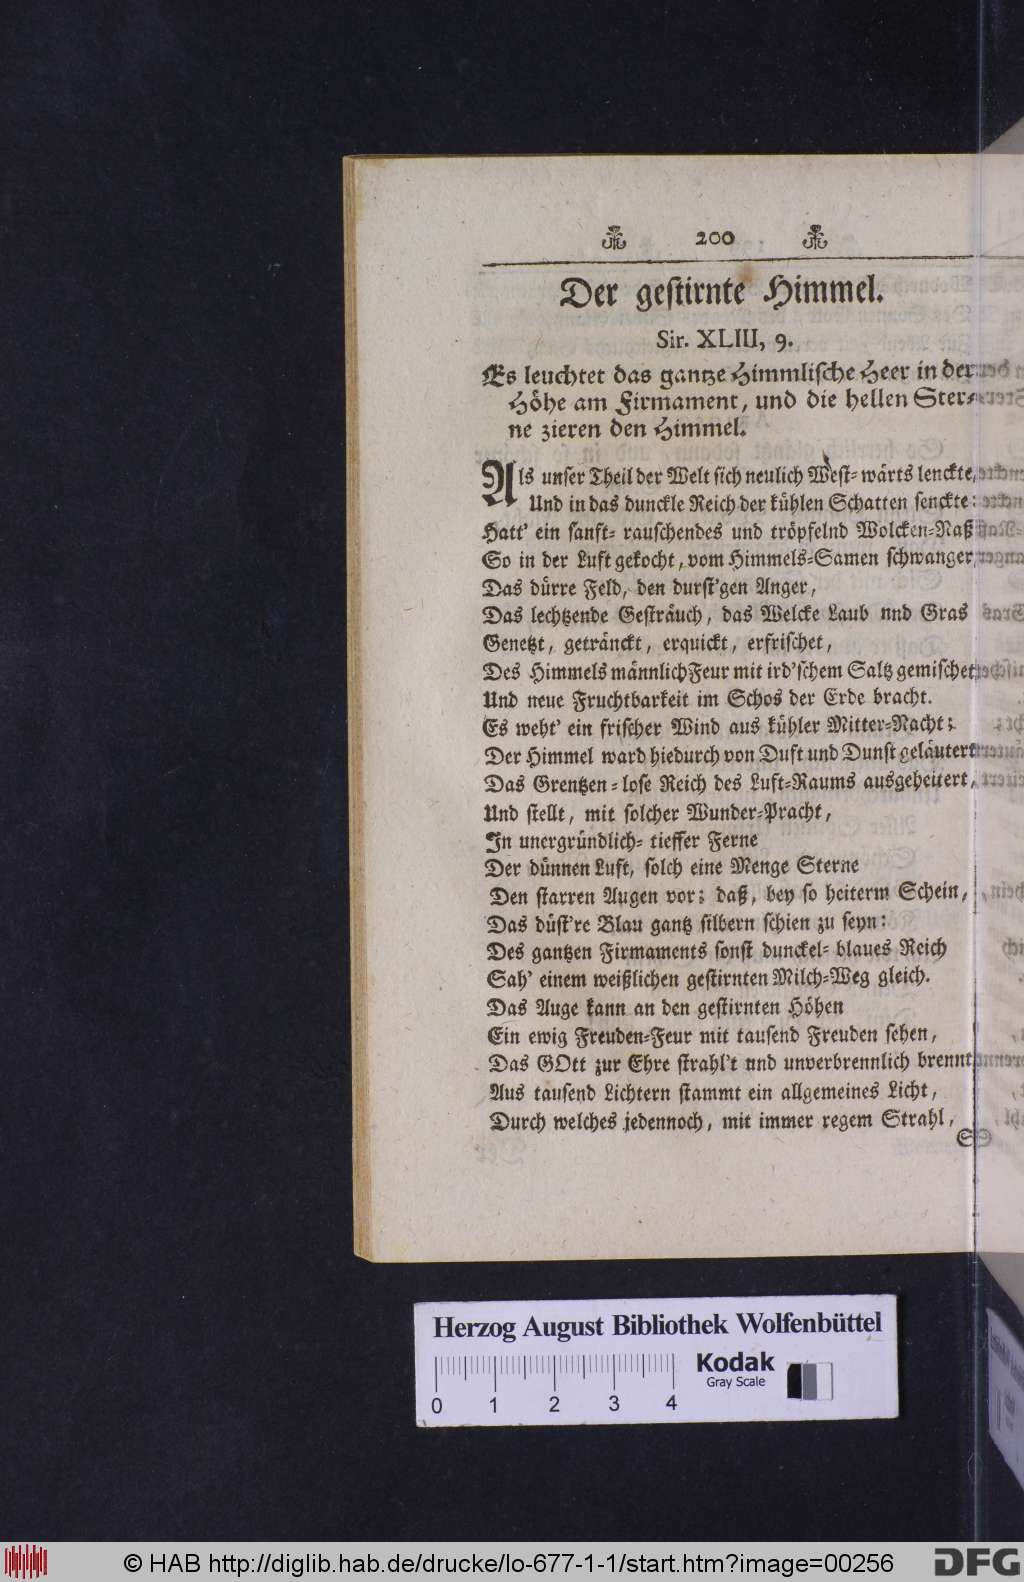 200
Der gestirnte Himmel.
Sir. XLIII, 9.
Es leuchtet das gantze Himmlische Heer in der
Höhe am Firmament, und die hellen Ster-
ne zieren den Himmel.
Als unser Theil der Welt sich neulich West-wärts lenckte,
Und in das dunckle Reich der kühlen Schatten senckte:
Hatt' ein sanft-rauschendes und tröpfelnd Wolcken-Naß
So in der Luft gekocht, vom Himmels-Samen schwanger,
Das dürre Feld, den durst'gen Anger,
Das lechtzende Gesträuch, das Welcke Laub nnd Gras
Genetzt, getränckt, erquickt, erfrischet,
Des Himmels männlich Feur mit ird'schem Saltz gemischet,
Und neue Fruchtbarkeit im Schos der Erde bracht.
Es weht' ein frischer Wind aus kühler Mitter-Nacht;
Der Himmel ward hiedurch von Duft und Dunst geläutert
Das Grentzen-lose Reich des Luft-Raums ausgeheitert,
Und stellt, mit solcher Wunder-Pracht,
In unergründlich-tieffer Ferne
Der dünnen Luft, solch eine Menge Sterne
Den starren Augen vor; daß, bey so heiterm Schein,
Das düst're Blau gantz silbern schien zu seyn:
Des gantzen Firmaments sonst dunckel-blaues Reich
Sah' einem weißlichen gestirnten Milch-Weg gleich.
Das Auge kann an den gestirnten Höhen
Ein ewig Freuden-Feur mit tausend Freuden sehen,
Das GOtt zur Ehre strahl't und unverbrennlich brennt
Aus tausend Lichtern stammt ein allgemeines Licht,
Durch welches jedennoch, mit immer regem Strahl,
Herzog August Bibliothek Wolfenbüttel
0 1 2 3 4
Kodak
Gray Scale
© HAB http://diglib.hab.de/drucke/lo-677-1-1/start.htm?image=00256
DFG